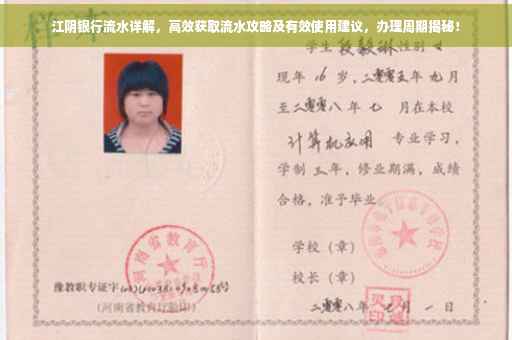 江阴银行流水详解，高效获取流水攻略及有效使用建议，办理周期揭秘！
样本
学生段毅琳性别女
现年16岁，二零零五年九月
至二零零八年七月在本校
计算机应用 专业学习，
学制三年，修业期满，成绩
合格，准予毕业。
学校（章）
校长（章）
河南省教育厅
豫教职专证字
（河南省教育厅验印）
二零零八年七月一日